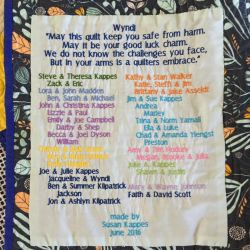 Wyndi
"May this quilt keep you safe from harm.
May it be your good luck charm.
We do not know the challenges you face,
But in your arms is a quilters embrace."
Steve & Theresa Kappes
Zack & Eric
Lora & John Madden
Ben, Sarah & Michael
John & Christina Kappes
Lizzie & Paul
Emily & Joe Campbell
Darby & Shep
Becca & Joel Dyson
William
Joe & Julie Kappes
Jacqueline & Wyndi
Ben & Summer Kilpatrick
Jackson
Jon & Ashlyn Kilpatrick
Kathy & Stan Walker
Kate, Steffi & Jim
Brittany & Jake Asseldt
Jim & Sue Kappes
Andrea
Marley
Trina & Norm Yamall
Ella & Luke
Chad & Amanda Ylengst
Preston
Amy & Tim Hudzey
Megan, Brooke & Julia
Jake & Kappes
Shawn & Justin
Mary & Wayne Johnson
Faith & David Scott
made by
Susan Kappes
June 2016